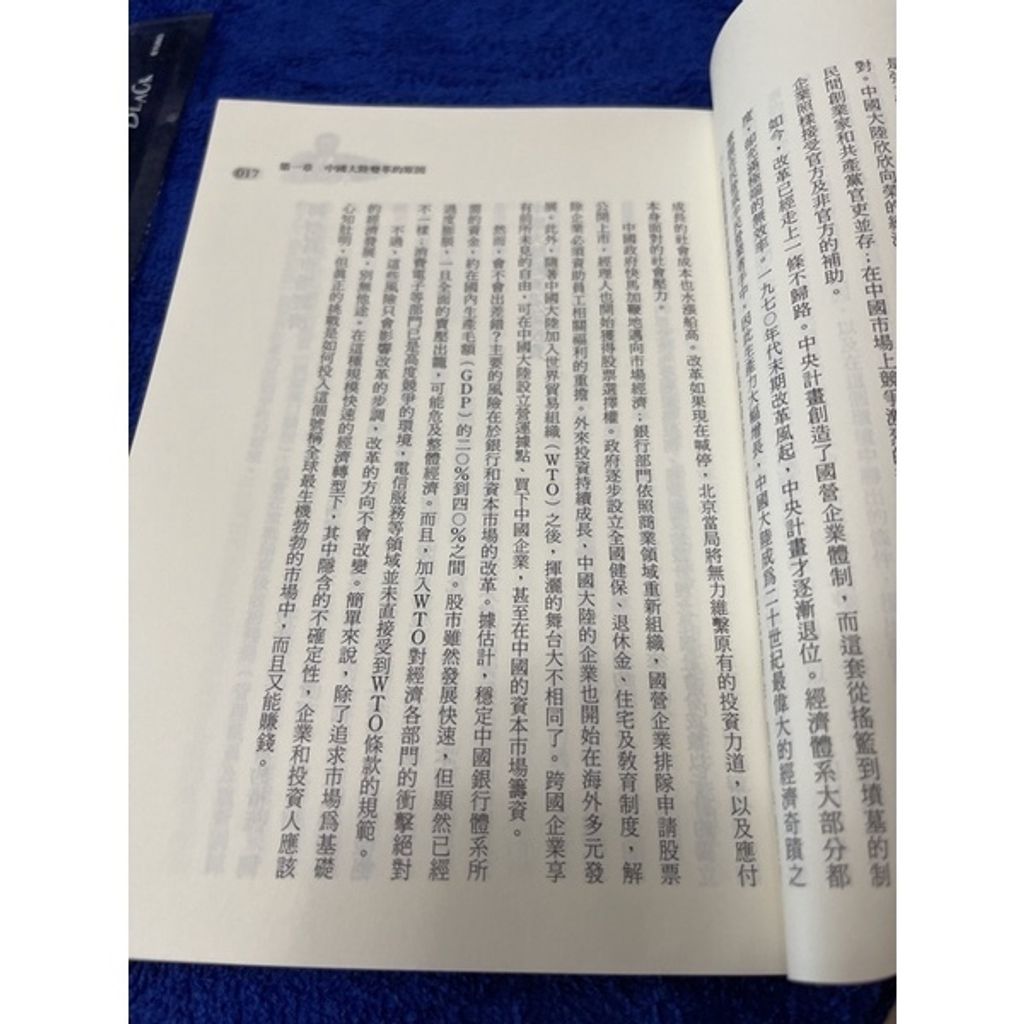 對。中國大陸欣欣向榮的經濟
民間創業家和共產黨官吏並存;在中國市場上競爭激烈的
企業照樣接受官方及非官方的補助。
如今,改革已經走上一條不歸路。中央計畫創造了國營企業體制,而這套從搖籃到墳墓的制
度,卻充滿極端的無效率。一九七〇年代末期改革風起,中央計畫才逐漸退位。經濟體系大部分都
因此生產力大幅增長,中國大陸成為二十世紀最偉大的經濟奇蹟之
成長的社會成本也水漲船高。改革如果現在喊停,北京當局將無力維繫原有的投資力道,以及應付
本身面對的社會壓力。
中國政府快馬加鞭地邁向市場經濟;銀行部門依照商業領域重新組織,國營企業排隊申請股票
公開上市,經理人也開始獲得股票選擇權。政府逐步設立全國健保、退休金、住宅及教育制度,解
除企業必須資助員工相關福利的重擔。外來投資持續成長,中國大陸的企業也開始在海外多元發
展。此外,隨著中國大陸加入世界貿易組織(WTO)之後,揮灑的舞台大不相同了。跨國企業享
有前所未見的自由,可在中國大陸設立營運據點、買下中國企業,甚至在中國的資本市場籌資。
然而,會不會出差錯?主要的風險在於銀行和資本市場的改革。據估計,穩定中國銀行體系所
需的資金,約在國內生產毛額(GDP)的二〇%到四〇%之間。股市雖然發展快速,但顯然已經
過度膨脹,一旦全面的賣壓出籠,可能危及整體經濟。而且,加入WTO對經濟各部門的衝擊絕對
不一樣;消費電子等部門已是高度競爭的環境,電信服務等領域並未直接受到WTO條款的規範。
不過,這些風險只會影響改革的步調,改革的方向不會改變。簡單來說,除了追求市場為基礎
的經濟發展,別無他途。在這種規模快速的經濟轉型下,其中隱含的不確定性,企業和投資人應該
心知肚明,但真正的挑戰是如何投入這個號稱全球最生機勃勃的市場中,而且又能賺錢。
第一章 中國大陸變革的原因
017